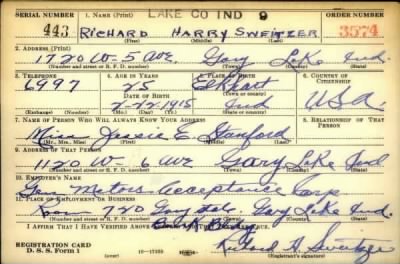 LAKE CO IND 9
SERIAL NUMBER 1. NAME (Print) ORDER NUMBER
443 RICHARD HARRY SWEITZER 3574
(First) (Middle) (Last)
2. ADDRESS (Print)
1720 W- 5 AVE. Gary Lake Ind.
(Number and street or R. F. D. number) (Town) (County) (State)
3. TELEPHONE 4. AGE IN YEARS 5. PLACE OF BIRTH 6. COUNTRY OF CITIZENSHIP
6997 25 Elkhart U.S.A.
DATE OF BIRTH (Town or county)
2-22-1915 Ind
(Exchange) (Number) (Mo.) (Day) (Yr.) (State or country)
7. NAME OF PERSON WHO WILL ALWAYS KNOW YOUR ADDRESS 8. RELATIONSHIP OF THAT PERSON
Miss Jessie E.
(Mr., Mrs., Miss) (First) (Middle) (Last)
9. ADDRESS OF THAT PERSON
1120 W- 6 AVE Gary Lake Ind
(Number and street or R. F. D. number) (Town) (County) (State)
10. EMPLOYER'S NAME
Gen Motors Acceptance Corp
11. PLACE OF EMPLOYMENT OR BUSINESS
720 Gary Gary Lake Ind.
(Number and street or R. F. D. number) (Town) (County) (State)
I AFFIRM THAT I HAVE VERIFIED ABOVE
REGISTRATION CARD
D. S. S. Form 1 Richard H. Sweitzer
(over) (Registrant's signature)